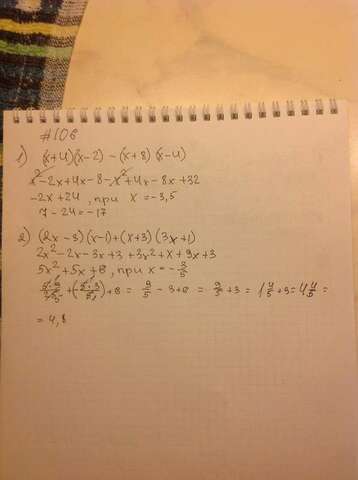 #106
1) (x+4)(x-2) - (x+8)(x-4)
x² - 2x + 4x - 8 - x² + 4x - 8x + 32
-2x + 24, при x = -3,5
7 - 24 = -17
2) (2x-3)(x-1)+(x+3)(3x+1)
2x² - 2x - 3x + 3 + 3x² + x + 9x + 3
5x² + 5x + 6, при x = -3/5
+ 6 = 9/5 - 3 + 6 = 9/5 + 3 = 1 4/5 + 3 = 4 4/5 =
= 4,8